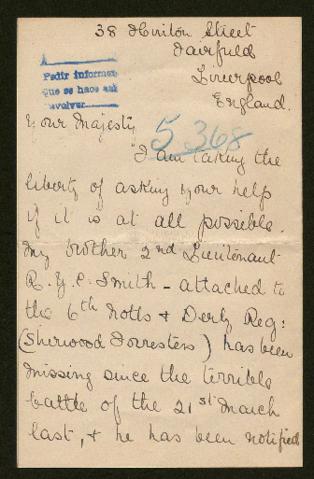 38 Hinton Street
Fairfield
Liverpool
England.
Pedir informes
que se hace ask
Your Majesty
5,368
"I am taking the
liberty of asking your help
if it is at all possible.
My brother 2nd Lieutenant
R. Y. C. Smith - attached to
the 6th Notts & Derby Reg:
(Sherwood Forresters) has been
missing since the terrible
battle of the 21st March
last, & he has been notified